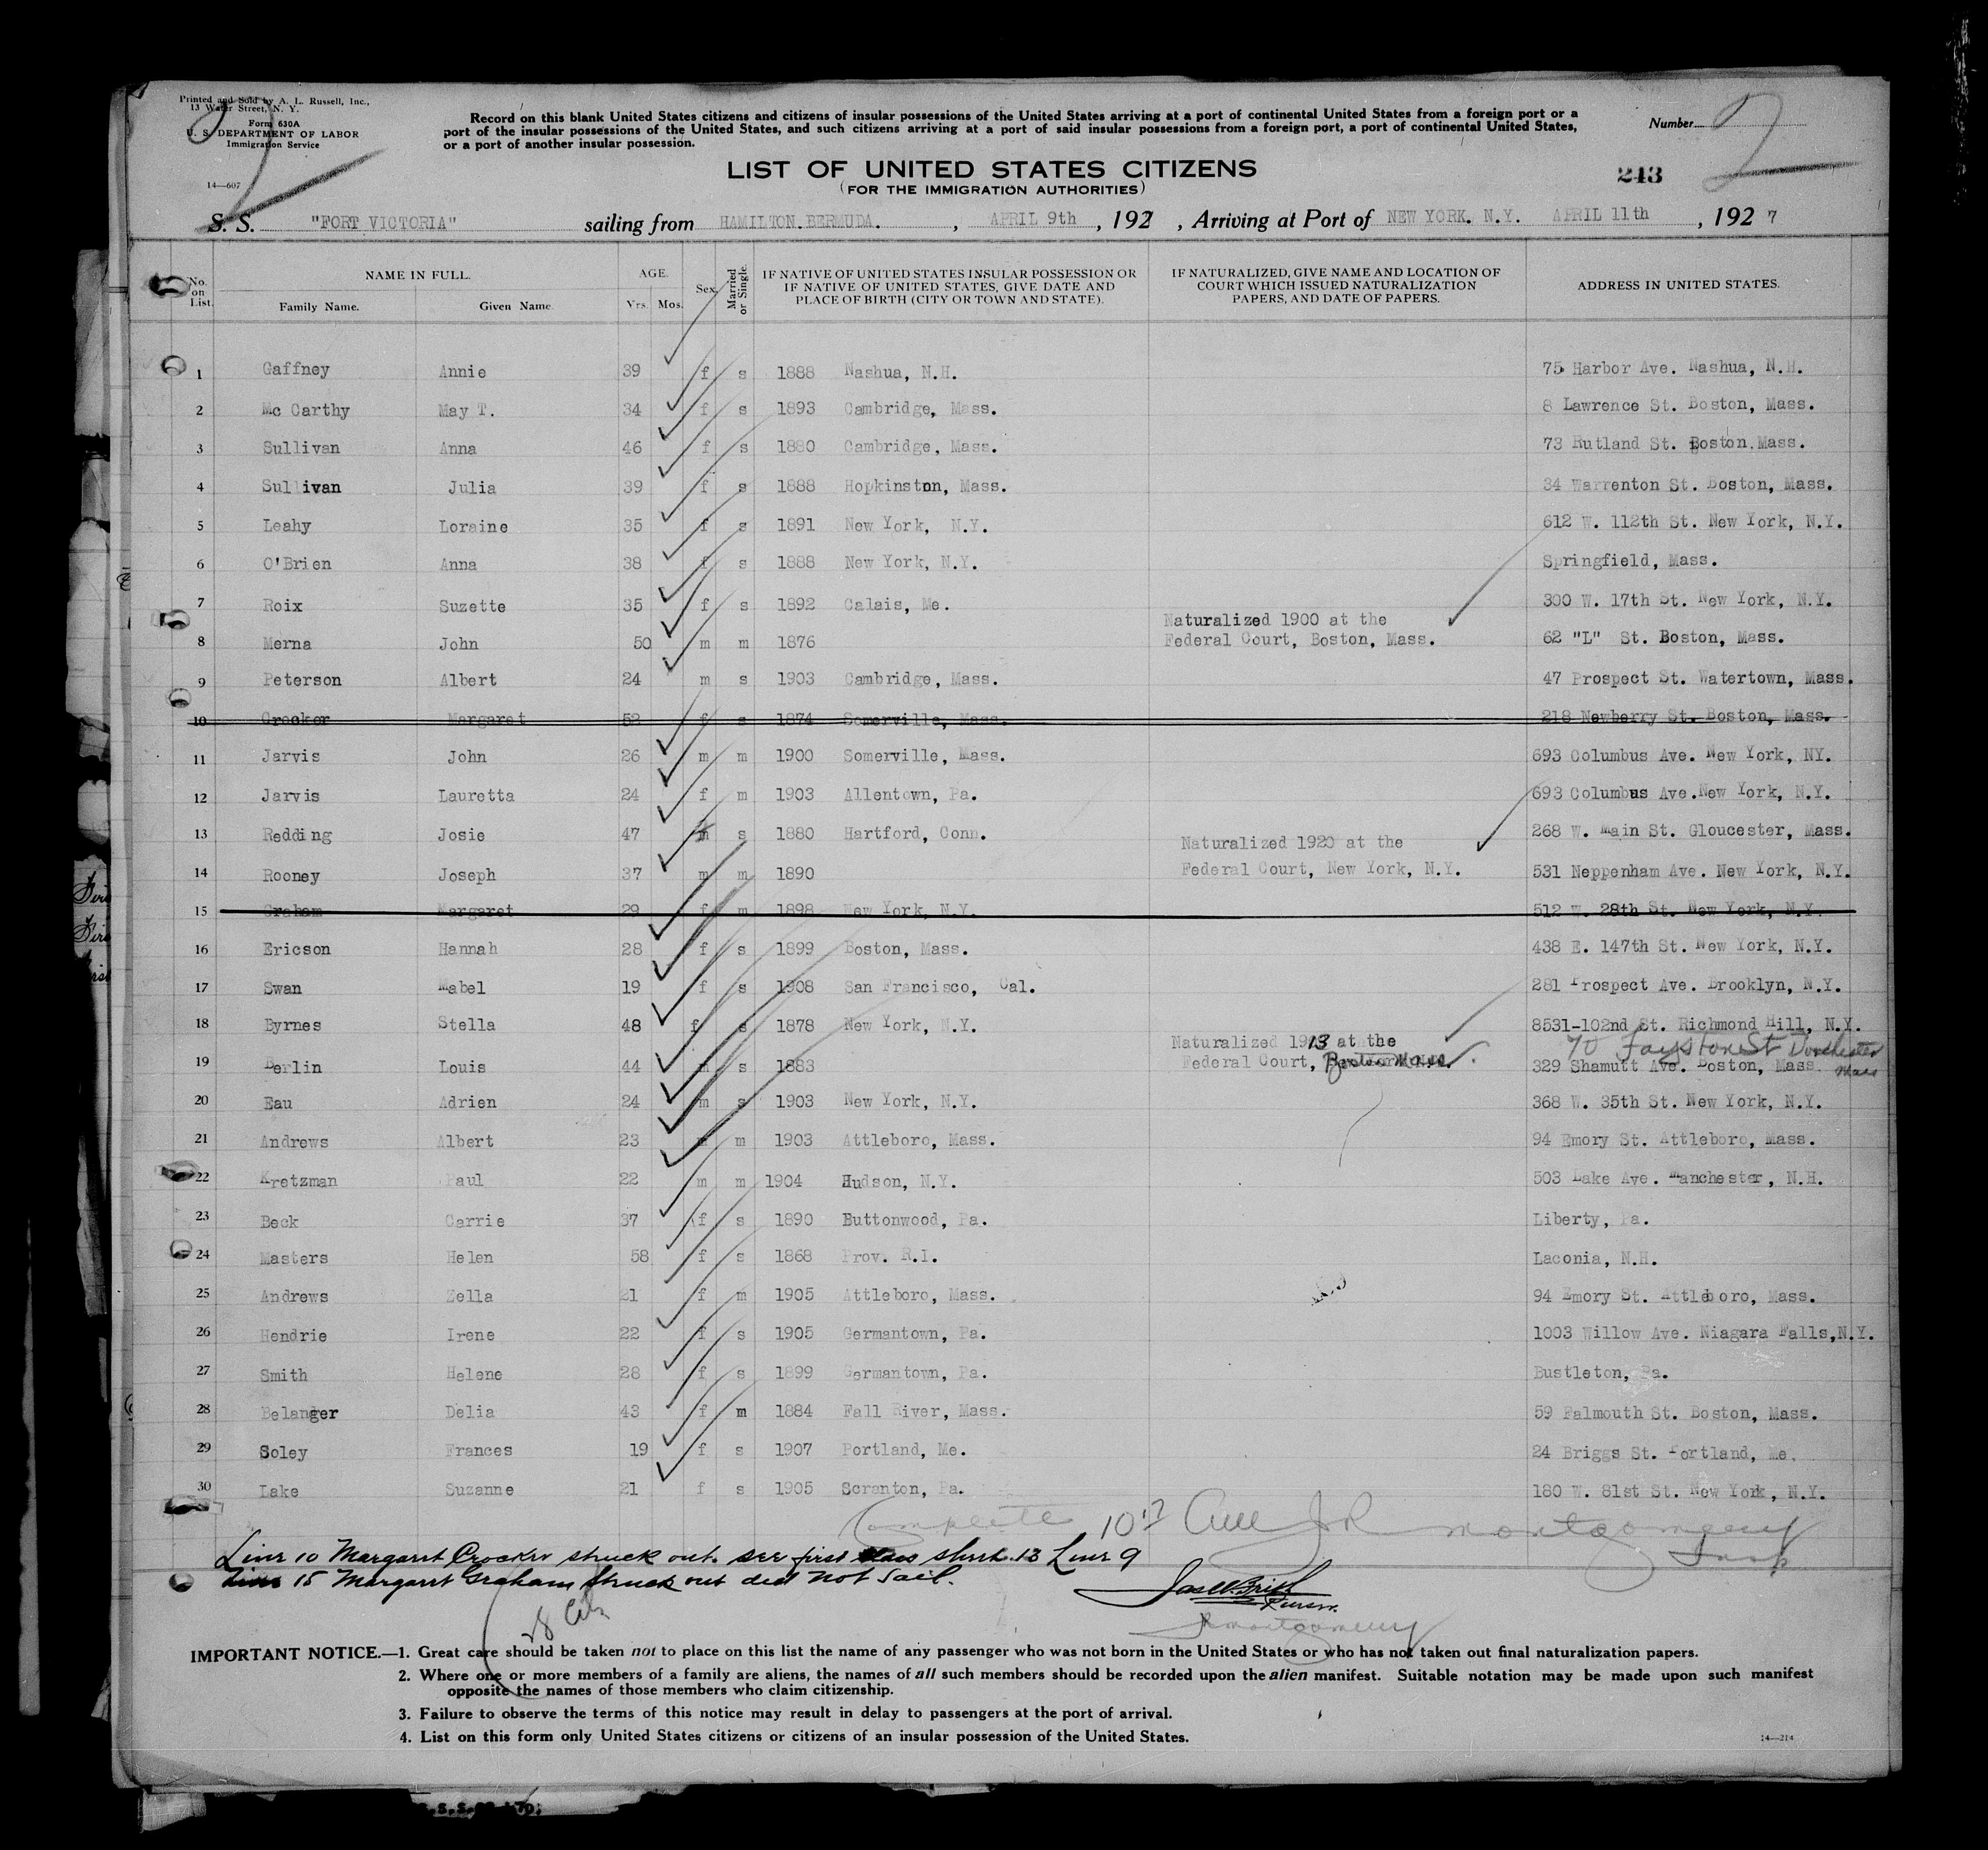 Printed and Sold by A. L. Russell, Inc.,
13 Water Street, N. Y.
Form 630A
U. S. DEPARTMENT OF LABOR
Immigration Service
14—607
Record on this blank United States citizens and citizens of insular possessions of the United States arriving at a port of continental United States from a foreign port or a
port of the insular possessions of the United States, and such citizens arriving at a port of said insular possessions from a foreign port, a port of continental United States,
or a port of another insular possession.
Number 2
243
LIST OF UNITED STATES CITIZENS
(FOR THE IMMIGRATION AUTHORITIES)
S. S. "FORT VICTORIA" sailing from HAMILTON.BERMUDA. , APRIL 9th , 1927 , Arriving at Port of NEW YORK. N.Y. APRIL 11th , 192 7
No. on List. NAME IN FULL. AGE. Sex. Married or Single. IF NATIVE OF UNITED STATES INSULAR POSSESSION OR IF NATIVE OF UNITED STATES, GIVE DATE AND PLACE OF BIRTH (CITY OR TOWN AND STATE). IF NATURALIZED, GIVE NAME AND LOCATION OF COURT WHICH ISSUED NATURALIZATION PAPERS, AND DATE OF PAPERS. ADDRESS IN UNITED STATES.
Family Name. Given Name. Yrs. Mos.
1 Gaffney Annie 39 f s 1888 Nashua, N.H. 75 Harbor Ave. Nashua, N.H.
2 Mc Carthy May T. 34 f s 1893 Cambridge, Mass. 8 Lawrence St. Boston, Mass.
3 Sullivan Anna 46 f s 1880 Cambridge, Mass. 73 Rutland St. Boston.Mass.
4 Sullivan Julia 39 f s 1888 Hopkinston, Mass. 34 Warrenton St. Boston, Mass.
5 Leahy Loraine 35 f s 1891 New York, N.Y. 612 W. 112th St. New York, N.Y.
6 O'Brien Anna 38 f s 1888 New York, N.Y. Springfield, Mass.
7 Roix Suzette 35 f s 1892 Calais, Me. 300 W. 17th St. New York, N.Y.
Naturalized 1900 at the
8 Merna John 50 m m 1876 Federal Court, Boston, Mass. 62 "L" St. Boston, Mass.
9 Peterson Albert 24 m s 1903 Cambridge, Mass. 47 Prospect St. Watertown, Mass.
10 Crocker Margaret 52 f s 1874 Somerville, Mass. 218 Newberry St. Boston, Mass.
11 Jarvis John 26 m m 1900 Somerville, Mass. 693 Columbus Ave. New York, NY.
12 Jarvis Lauretta 24 f m 1903 Allentown, Pa. 693 Columbus Ave.New York, N.Y.
13 Redding Josie 47 f s 1880 Hartford, Conn. 268 W. Main St. Gloucester, Mass.
Naturalized 1920 at the
14 Rooney Joseph 37 m m 1890 Federal Court, New York, N.Y. 531 Neppenham Ave. New York, N.Y.
15 Graham Margaret 29 f m 1898 New York, N.Y. 512 W. 28th St. New York, N.Y.
16 Ericson Hannah 28 f s 1899 Boston, Mass. 438 E. 147th St. New York, N.Y.
17 Swan Mabel 19 f s 1908 San Francisco, Cal. 281 Prospect Ave. Brooklyn, N.Y.
18 Byrnes Stella 48 f s 1878 New York, N.Y. 8531-102nd St. Richmond Hill, N.Y.
Naturalized 1913 at the 70 Fayston St Dorchester Mass
19 Berlin Louis 44 m s 1883 Federal Court, Boston Mass. 329 Shamutt Ave. Boston, Mass
20 Eau Adrien 24 m s 1903 New York, N.Y. 368 W. 35th St. New York, N.Y.
21 Andrews Albert 23 m m 1903 Attleboro, Mass. 94 Emory St. Attleboro, Mass.
22 Kretzman Paul 22 m m 1904 Hudson, N.Y. 503 Lake Ave. Manchester, N.H.
23 Beck Carrie 37 f s 1890 Buttonwood, Pa. Liberty, Pa.
24 Masters Helen 58 f s 1868 Prov. R.I. Laconia, N.H.
25 Andrews Zella 21 f m 1905 Attleboro, Mass. 94 Emory St. Attleboro, Mass.
26 Hendrie Irene 22 f s 1905 Germantown, Pa. 1003 Willow Ave. Niagara Falls,N.Y.
27 Smith Helene 28 f s 1899 Germantown, Pa. Bustleton, Pa.
28 Belanger Delia 43 f m 1884 Fall River, Mass. 59 Falmouth St. Boston, Mass.
29 Soley Frances 19 f s 1907 Portland, Me. 24 Briggs St. Portland, Me.
30 Lake Suzanne 21 f s 1905 Scranton, Pa. 180 W. 81st St. New York, N.Y.
Complete JR Montgomery
Insp
Line 10 Margaret Crocker struck out. see first class sheet. 13 Line 9
Line 15 Margaret Graham struck out did not sail.
Purser.
JR Montgomery
28 Citz
IMPORTANT NOTICE.—1. Great care should be taken not to place on this list the name of any passenger who was not born in the United States or who has not taken out final naturalization papers.
2. Where one or more members of a family are aliens, the names of all such members should be recorded upon the alien manifest. Suitable notation may be made upon such manifest
opposite the names of those members who claim citizenship.
3. Failure to observe the terms of this notice may result in delay to passengers at the port of arrival.
4. List on this form only United States citizens or citizens of an insular possession of the United States.
14—214